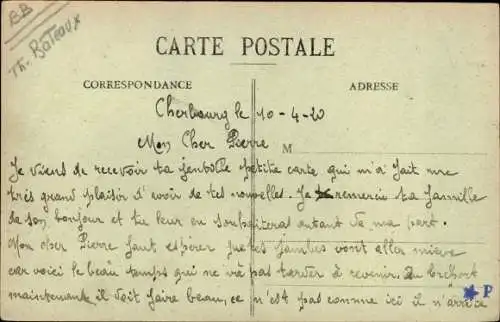 BB
Th. Bateaux
CARTE POSTALE
CORRESPONDANCE
ADRESSE
Cherbourg le 10-4-20
Mon Cher Pierre
M
Je viens de recevoir ta gentille petite carte qui m'a fait une
très grand plaisir d'avoir de tes nouvelles. Je remercie ta famille
de son bonjour et tu leur en souhaiteras autant de ma part.
Mon cher Pierre faut espérer que tes jambes vont aller mieux
car voici le beau temps qui ne va pas tarder à revenir. Au
maintenant il doit faire beau, ce n'est pas comme ici il n'arrête
P